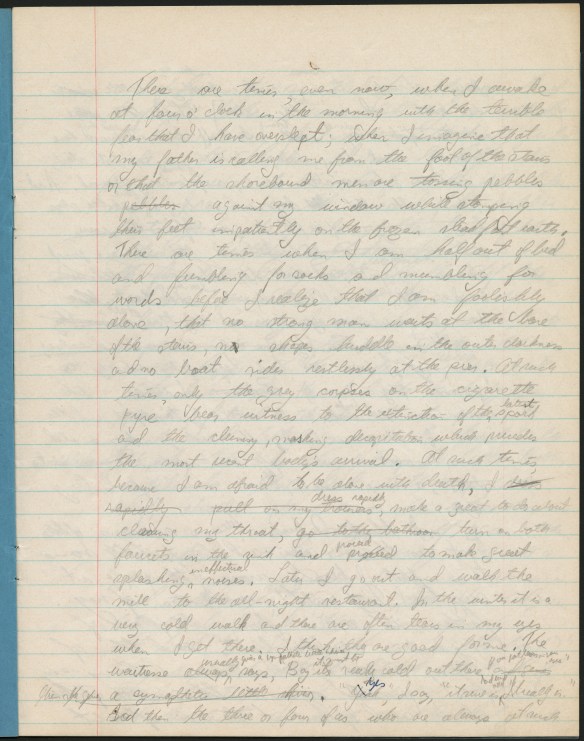 There are times, even now, when I awake
at four o'clock in the morning with the terrible
fear that I have overslept; when I imagine that
my father is calling me from the foot of the stairs
or that the shorebound men are tossing pebbles
pebbles against my window while stomping
their feet impatiently on the frozen
There are times when I am half out of bed
and fumbling for socks and mumbling for
words before I realize that I am foolishly
alone, that no strong man waits at the base
of the stairs, no shapes huddle in the outer darkness
and no boat rides restlessly at the pier. At such
times only the grey corpses on the cigarette
pyre bear witness to the extinction of the
and the
the most recent arrival. At such times,
because I am afraid to be alone with death, I dress
dress rapidly
rapidly pull on my trousers, make a great to do about
clearing my throat, go to the bathroom turn on both
faucets in the sink and proceed to make great
ineffectual
splashing noises. Later I go out and walk the
mile to the all-night restaurant. In the winter it is a
very cold walk and there are often tears in my eyes
when I get there. The
waitress always says, Boy, it's really cold out there
a sympathetic little shiver. "Yes," I say, "it really is."
And then the three or four of us who are always